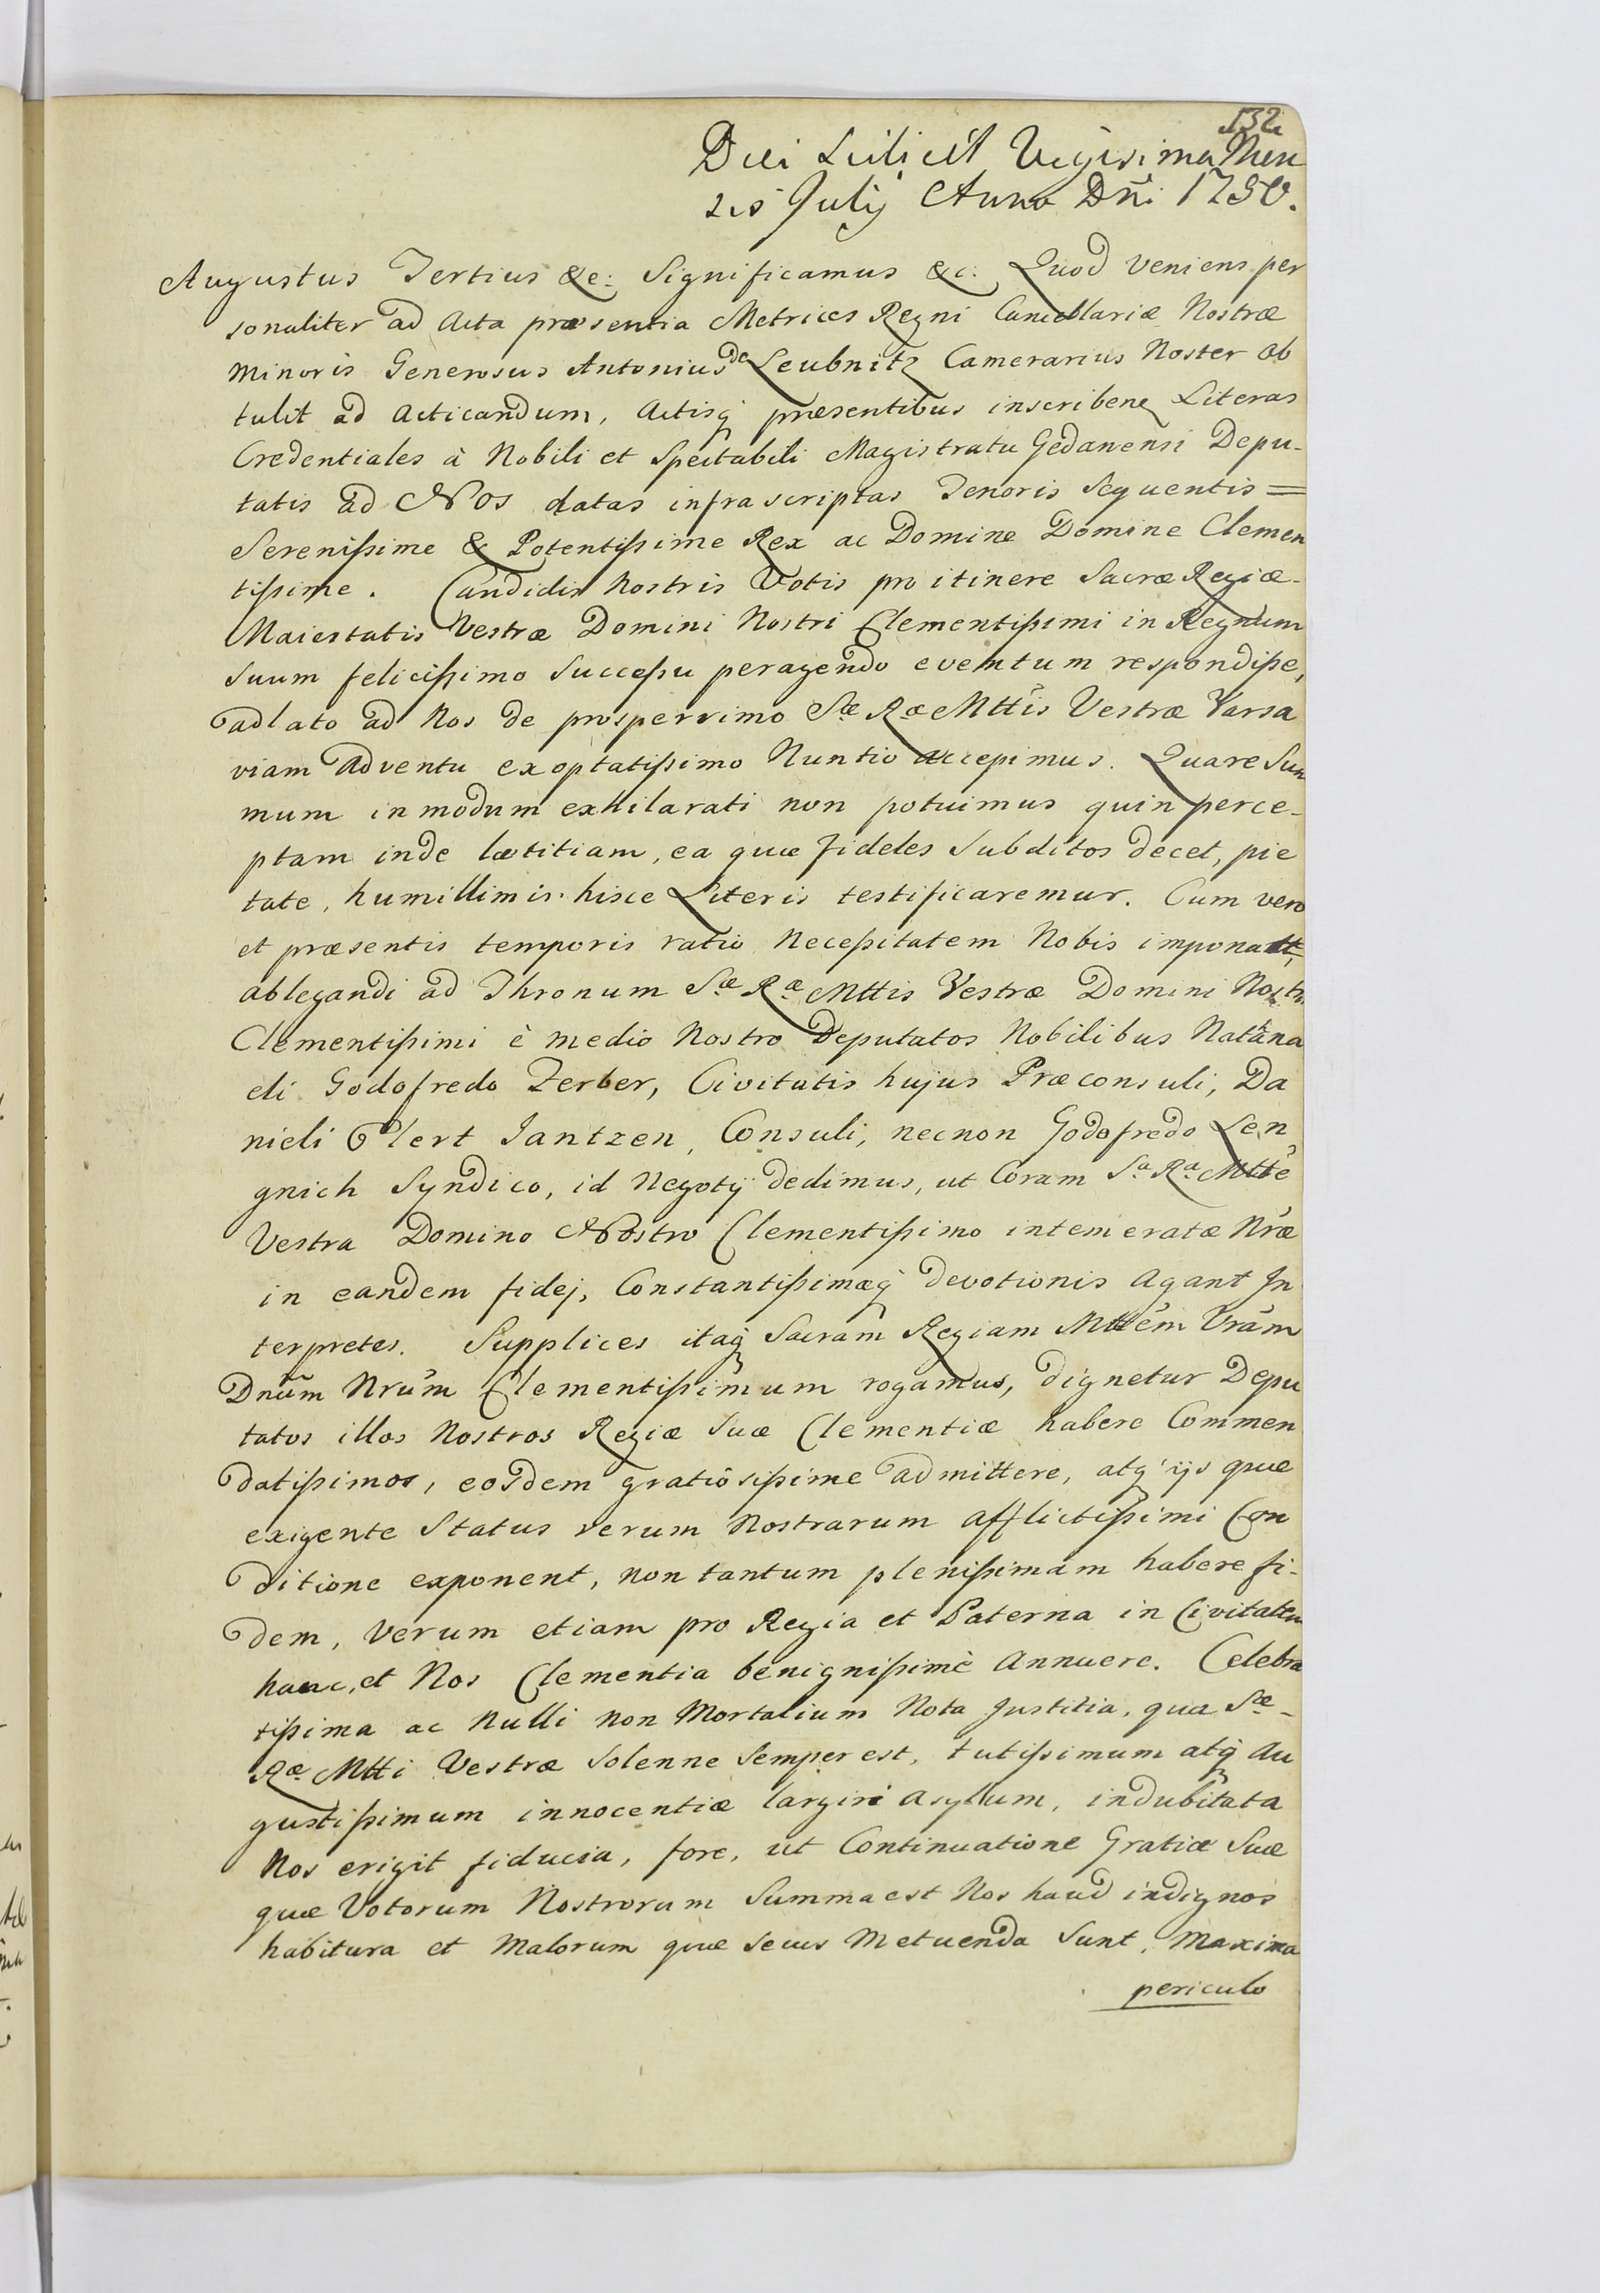 132
Diei scilicet Vigesima Men
sis Julij Anno Dñi 1750.
Augustus Tertius &c: Significamus &c. Quod veniens per
sonaliter ad Acta præsentia Metrices Regni Cancellariæ Nostræ
Minoris Generosus Antonius de Leubnitz Camerarius Noster ob
tulit ad acticandum, Actisq præsentibus inscribenꝫ Literas
Credentiales à Nobili et Spectabili Magistratu Gedanensi Depu-
tatis ad Nos datas infrascriptas Tenoris sequentis =
Serenißime & Potentißime Rex ac Domine Domine Clemen
tißime. Candidis Nostris Votis pro itinere Sacræ Regiæ-
Maiestatis Vestræ Domini Nostri Clementißimi in Regnum
suum felicißimo succeßu peragendo eventum respondiße,
adlato ad Nos de prosperrimo Sæ Ræ Mttis Vestræ Varsa
viam adventu exoptatißimo Nuntio accepimus. Quare Sum
mum in modum exhilarati non potuimus quin perce-
ptam inde lætitiam, ea quæ fideles subditos decet, pie
tate, humillimis hisce Literis testificaremur. Cum vero
et præsentis temporis ratio Neceßitatem Nobis imponat,
ablegandi ad Thronum Sæ Ræ Mttis Vestræ Domini Nostri
Clementißimi è medio Nostro Deputatos Nobilibus Nathana
eli Godofredo Ferber, Civitatis hujus Præconsuli, Da
nieli Elert Jantzen, Consuli, necnon Godofredo Len
gnich Syndico, id Negotij dedimus, ut Coram Sa Ra Mtte
Vestra Domino Nostro Clementißimo intemeratæ Nræ
in eandem fidej, Constantißimæq devotionis agant In
terpretes. Supplices itaq Sacram Regiam Mttem Vram
Dnum Nrum Clementißimum rogamus, dignetur Depu
tatos illos Nostros Regiæ Suæ Clementiæ habere Commen
datißimos, eosdem gratiosißime admittere, atq ijs quæ
exigente Status rerum Nostrarum afflictißimi Con
ditione exponent, non tantum plenißimam habere fi-
dem, verum etiam pro Regia et Paterna in Civitatem
hanc, et Nos Clementia benignißimè Annuere. Celebra
tißima ac Nulli non Mortalium Nota Justitia, qua Sæ-
Ræ Mtti Vestræ Solenne Semper est, tutißimum atq Au
gustißimum innocentiæ largiri asylum, indubitata
Nos erigit fiducia, fore, ut Continuatione Gratiæ Suæ
quæ Votorum Nostrorum Summa est Nos haud indignos
habitura et Malorum quæ secus Metuenda Sunt, Maxima
periculo